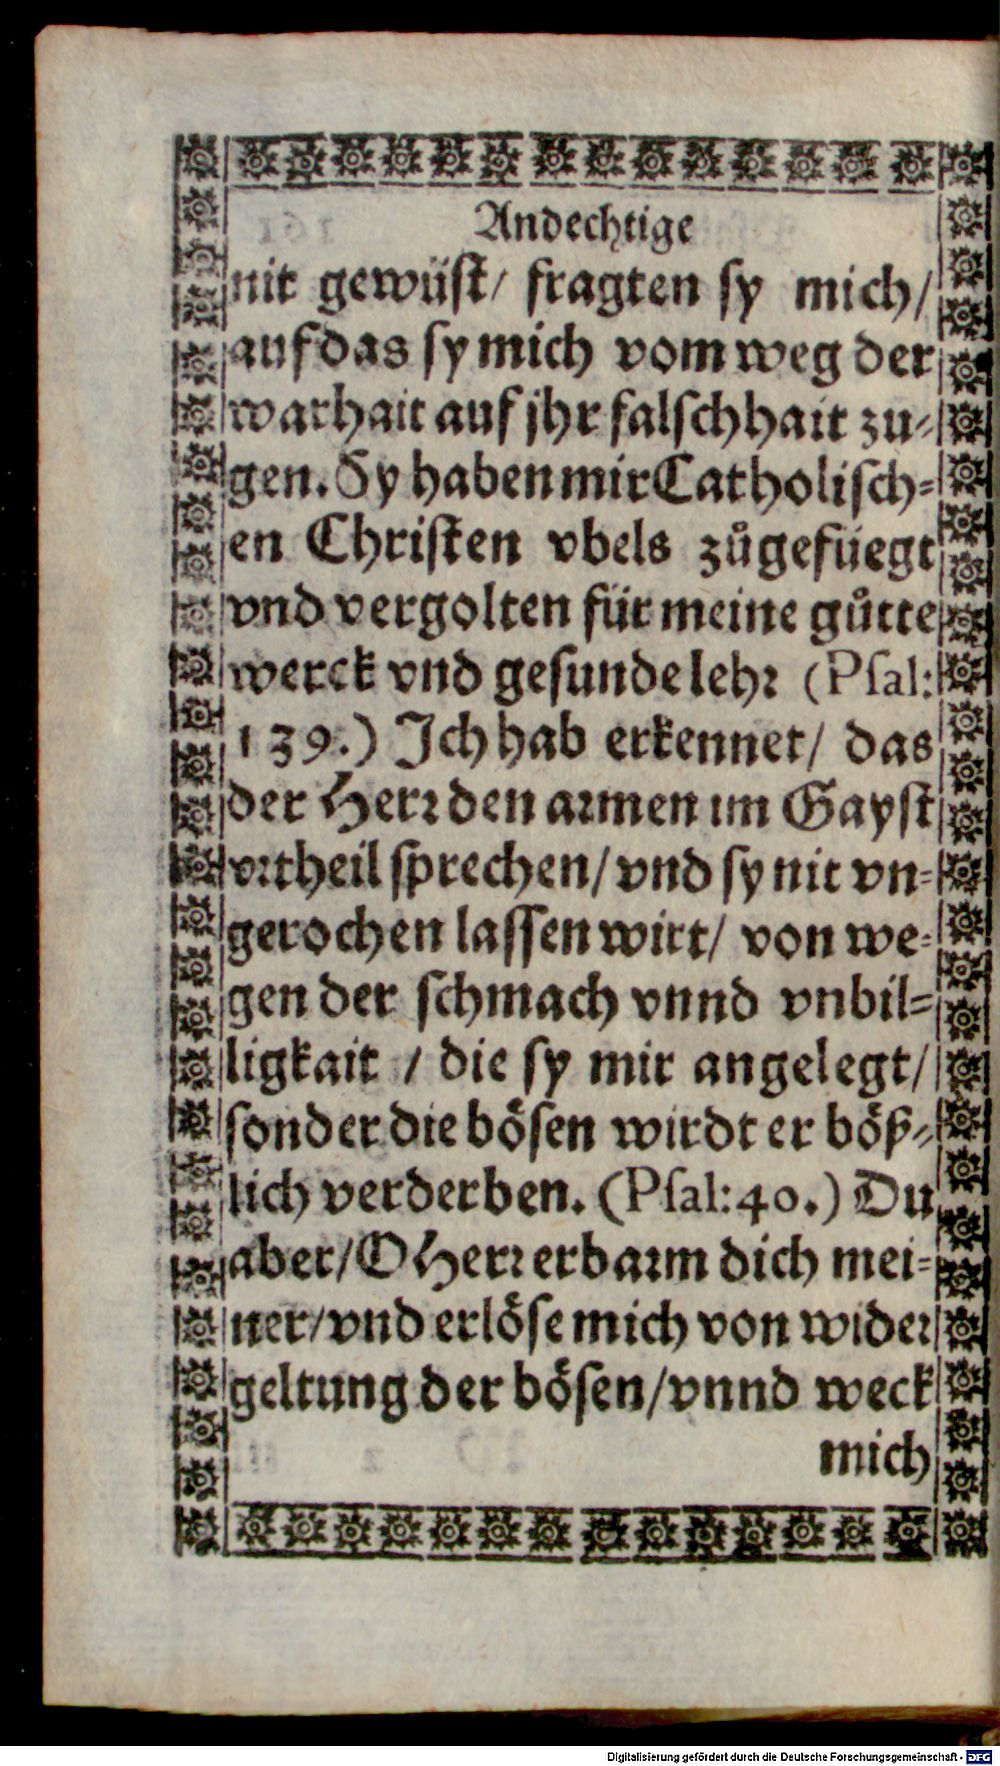 Andechtige
nit gewüst/ fragten sy mich/
auf das sy mich vom weg der
warhait auf jhr falschhait zu-
gen. Sy haben mir Catholisch-
en Christen vbels zůgefüegt
vnd vergolten für meine gůtte
werck vnd gesunde lehr (Psal:
139.) Ich hab erkennet/ das
der Herr den armen im Gayst
vrtheil sprechen/ vnd sy nit vn-
gerochen lassen wirt/ von we-
gen der schmach vnnd vnbil-
ligkait / die sy mir angelegt/
sonder die bösen wirdt er böß-
lich verderben. (Psal: 40.) Du
aber/ O Herr erbarm dich mei-
ner/ vnd erlöse mich von wider
geltung der bösen/ vnnd weck
mich
Digitalisierung gefördert durch die Deutsche Forschungsgemeinschaft - DFG